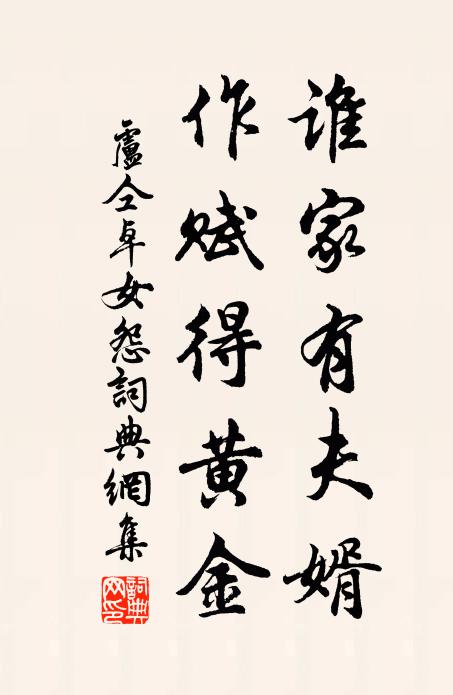 誰家有夫婿
作賦得黄金
盧仝卓女怨詞典網集
詞典網印